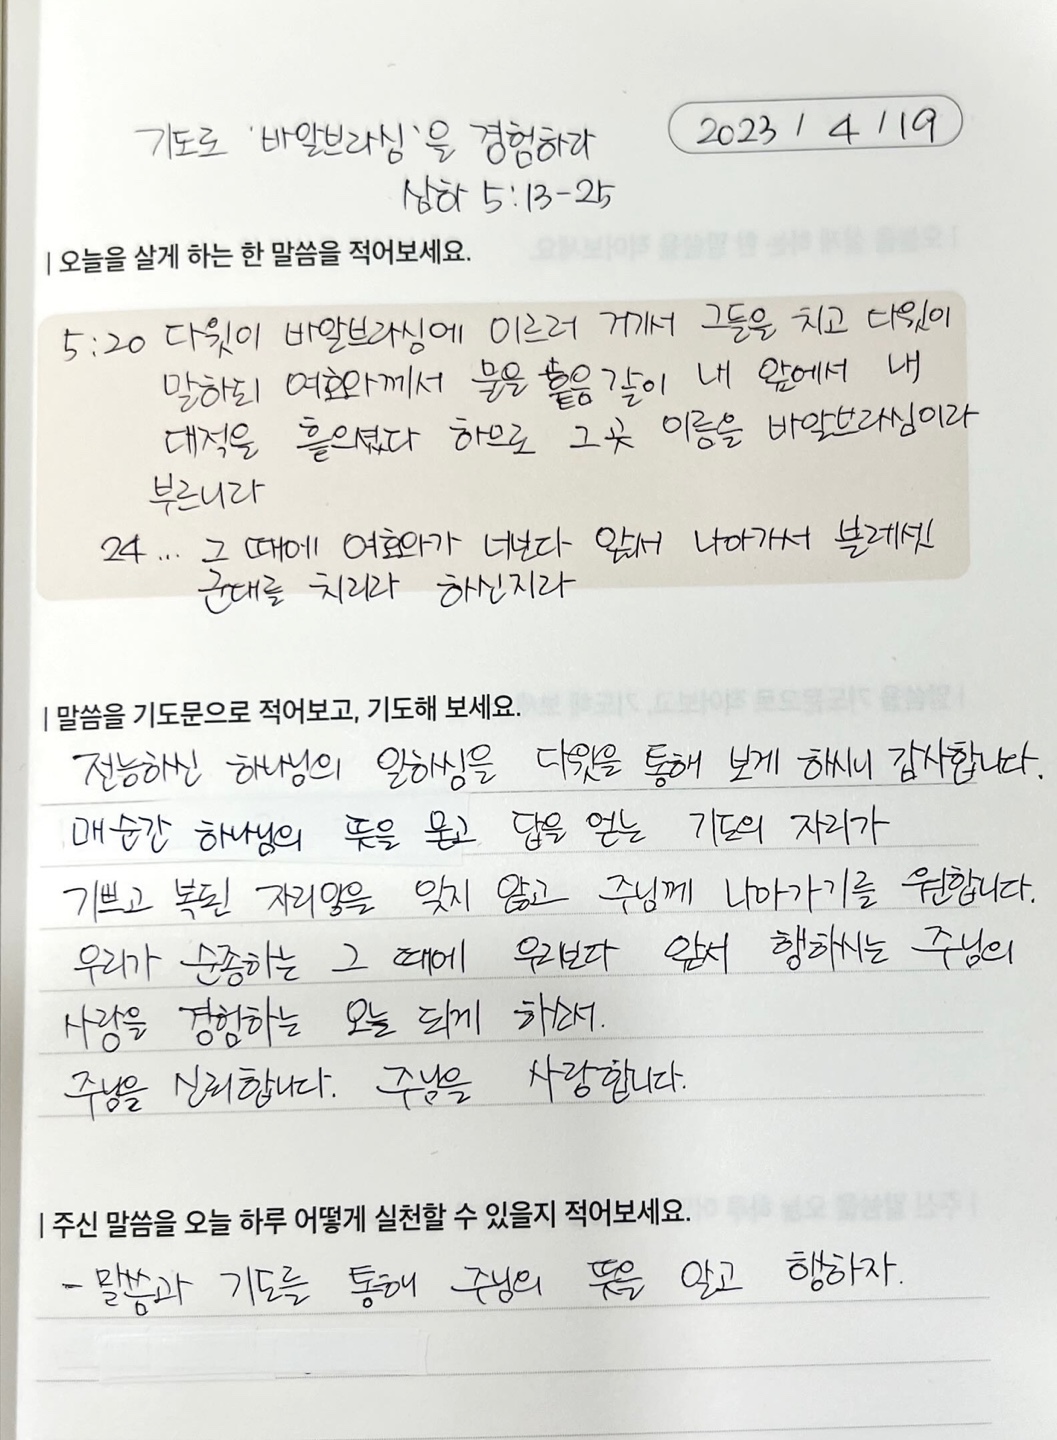 2023 / 4 / 19
기도로 '바알브라심'을 경험하라
삼하 5:13-25
| 오늘을 살게 하는 한 말씀을 적어보세요.
5:20 다윗이 바알브라심에 이르러 거기서 그들을 치고 다윗이
말하되 여호와께서 물을 흩음 같이 내 앞에서 내
대적을 흩으셨다 하므로 그곳 이름을 바알브라심이라
부르니라
24 ... 그 때에 여호와가 너보다 앞서 나아가서 블레셋
군대를 치리라 하신지라
| 말씀을 기도문으로 적어보고, 기도해 보세요.
전능하신 하나님의 일하심을 다윗을 통해 보게 하시니 감사합니다.
매 순간 하나님의 뜻을 묻고 답을 얻는 기도의 자리가
기쁘고 복된 자리임을 잊지 않고 주님께 나아가기를 원합니다.
우리가 순종하는 그 때에 우리보다 앞서 행하시는 주님의
사랑을 경험하는 오늘 되게 하소서.
주님을 신뢰합니다. 주님을 사랑합니다.
| 주신 말씀을 오늘 하루 어떻게 실천할 수 있을지 적어보세요.
- 말씀과 기도를 통해 주님의 뜻을 알고 행하자.